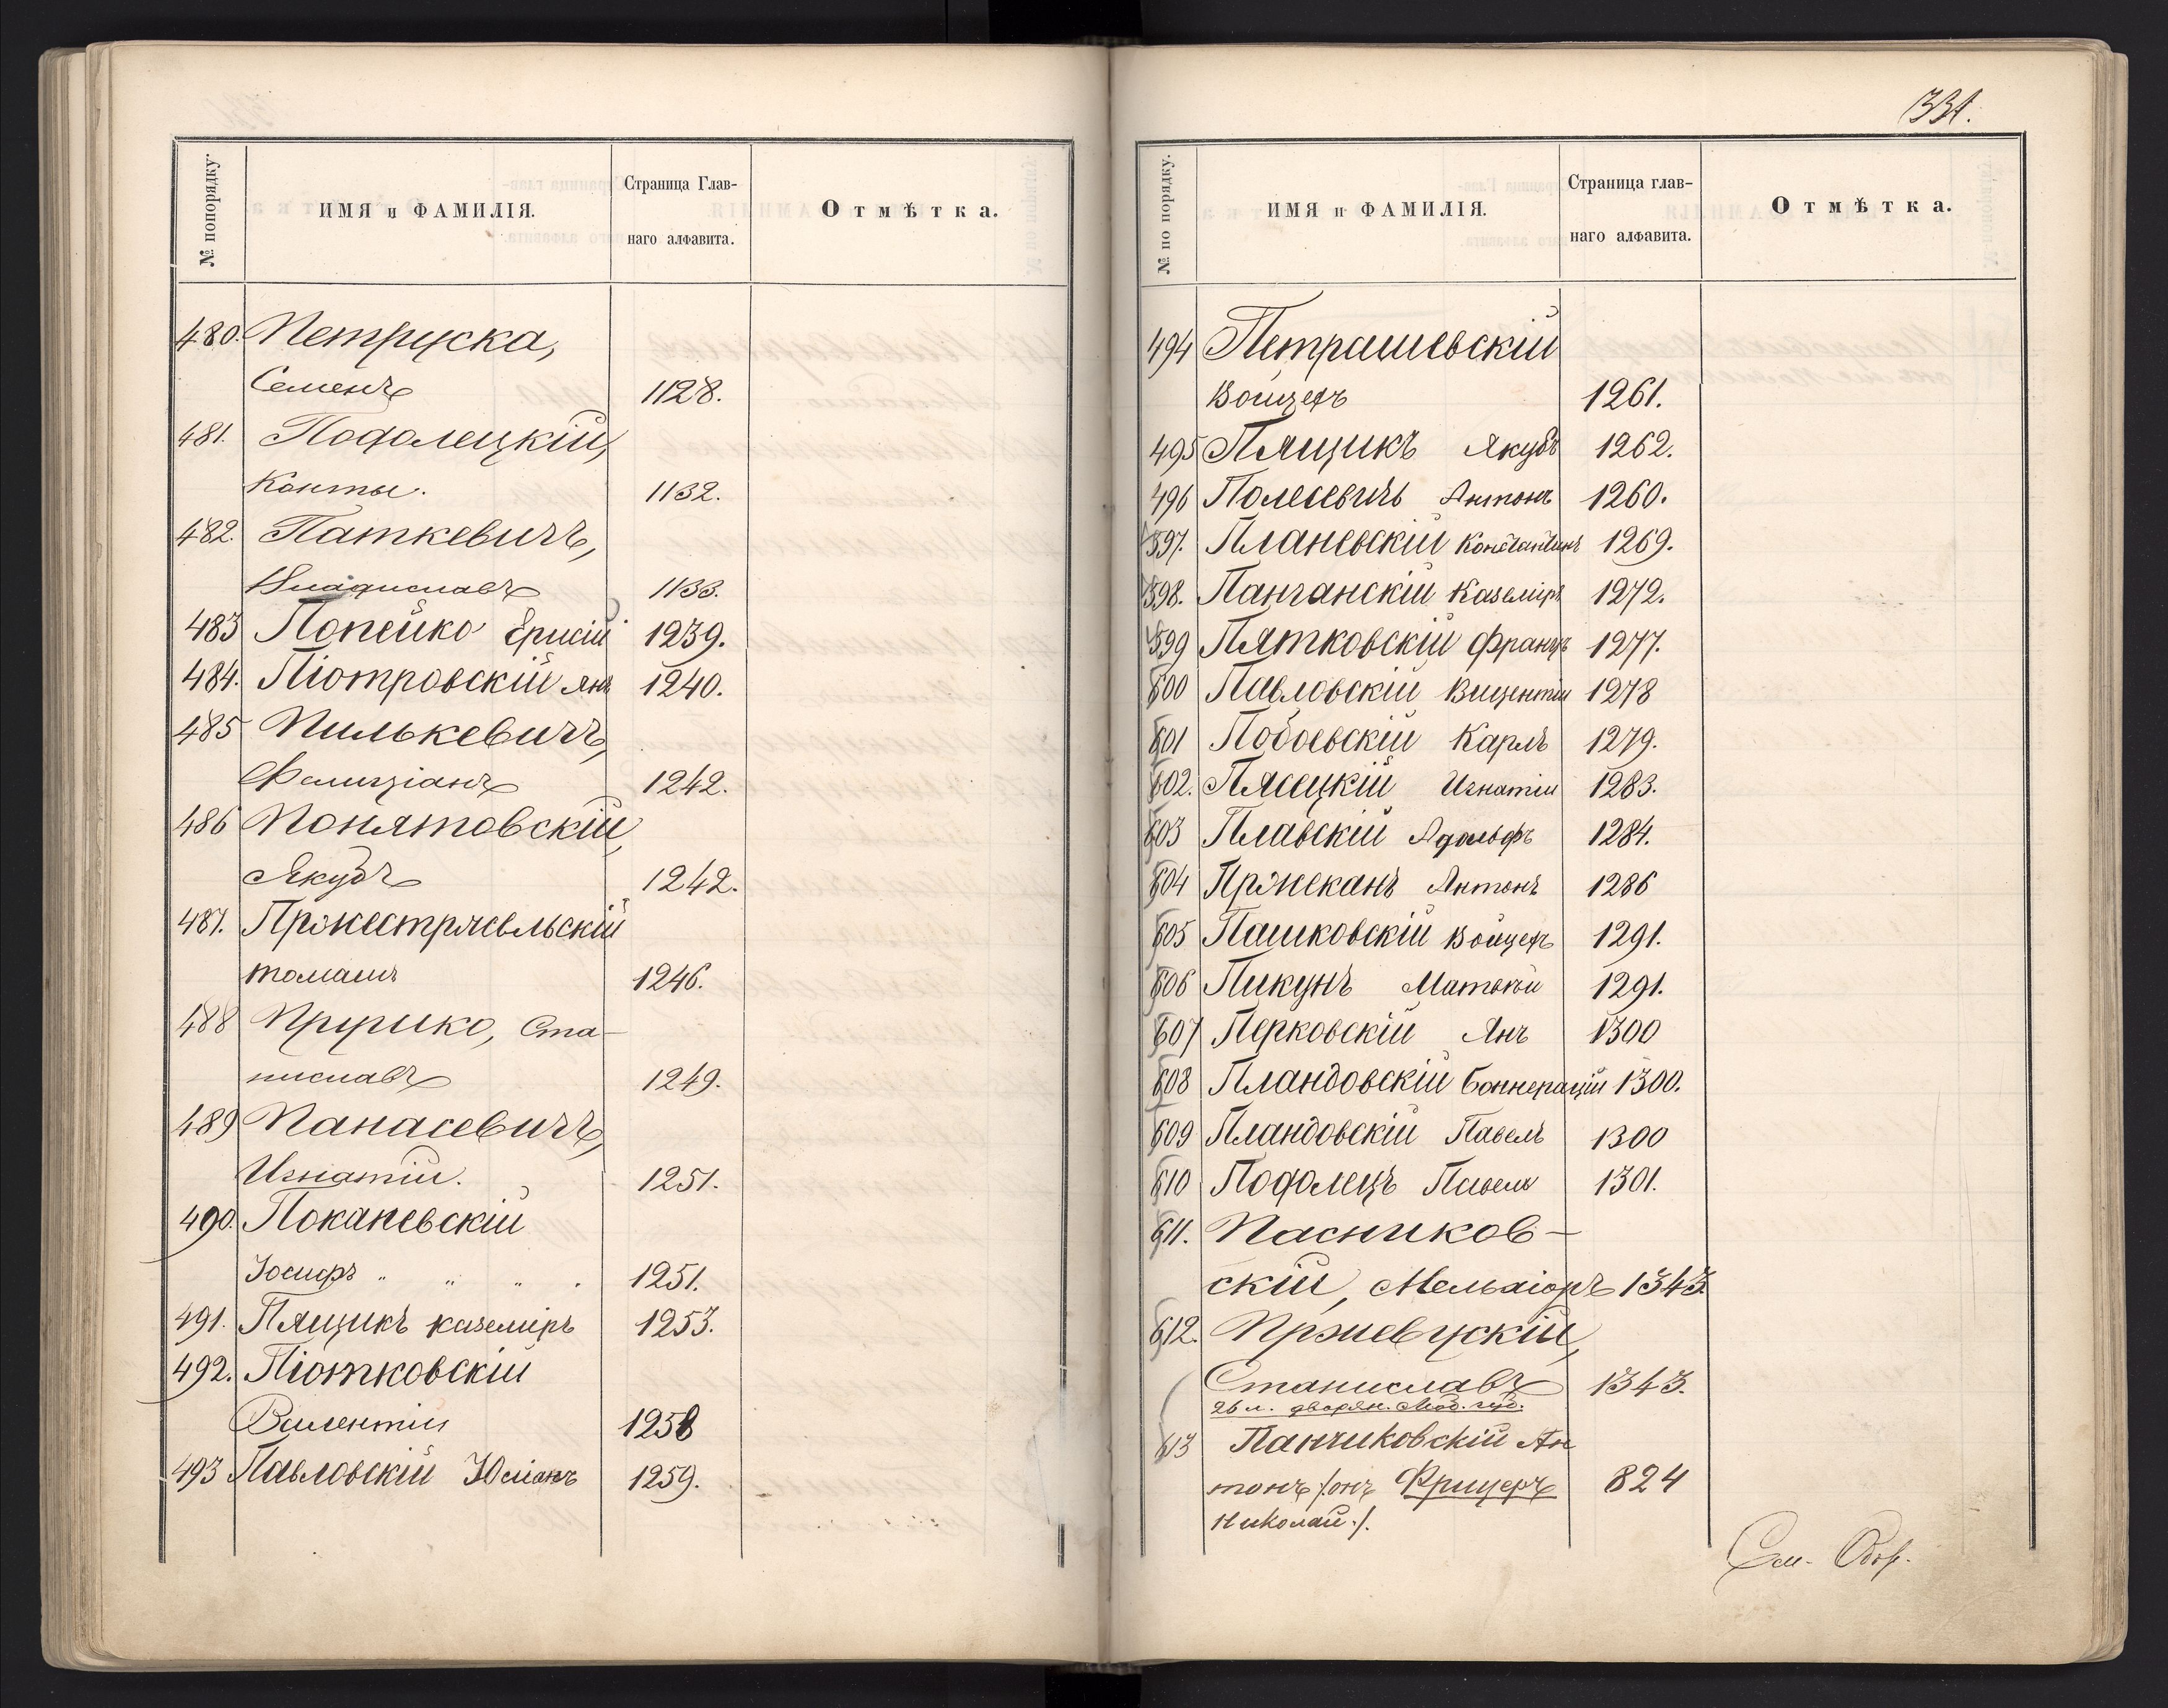 № попорядку.
ИМЯ и ФАМИЛІЯ.
Страница Глав-
наго алфавита.
Отмѣтка.
480. Петруска,
Семенъ 1128.
481. Подолецкій,
Канты. 1132.
482. Паткевичъ,
Владиславъ 1133.
483 Попейко Ерисій 1239.
484. Піотровскій Янъ 1240.
485 Пилькевичъ,
Фелиціанъ 1242.
486 Понятовскій,
Якубъ 1242.
487. Пржестржевльскій
Томашъ 1246.
488 Ста-
ниславъ 1249.
489 Панасевичъ,
Игнатій. 1251.
490. Покапевскій
Іосифъ " " " . 1251.
491. Пящикъ Каземіръ 1253.
492. Піотковскій
Валентій 1258
493 Павловскій Юліанъ 1259.
331.
№ по порядку.
ИМЯ и ФАМИЛІЯ.
Страница глав-
наго алфавита.
Отмѣтка.
494 Петрашевскій
Войцехъ 1261.
495 Пящикъ Якубъ 1262.
496 Полесевичъ Антонъ 1260.
597. Планевскій Константинъ 1269.
598. Панганскій Каземіръ 1272.
599 Пятковскій Францъ 1277.
600 Павловскій Вицентій 1278
601 Побоевскій Карлъ 1279.
602. Пясецкій Игнатій 1283.
603 Плавскій Адольфъ 1284.
604 Пржеканъ Антонъ 1286
605 Пашковскій Войцехъ 1291.
606 Пикунъ Матвѣй 1291.
607 Перковскій Янъ 1300
608 Пландовскій 1300.
609 Пландовскій Павелъ 1300
610 Подолецъ Павелъ 1301.
611. Пасников-
скій, Мельхіоръ 1343
612.
Станиславъ 1343.
26 л. дворян. губ.
613 Панчиковскій Ан
тонъ /:онъ Крицеръ 824
Николай:/.
См. Обор.